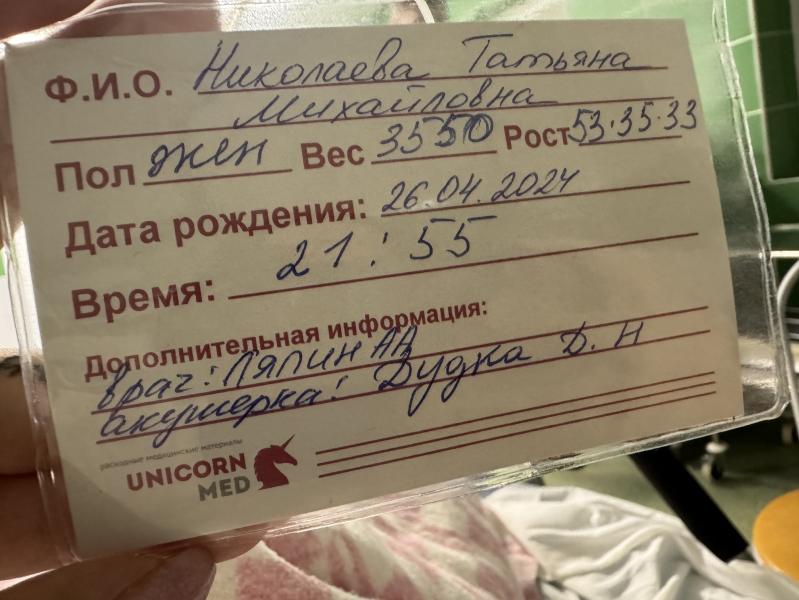 Ф.И.О. Николаева Татьяна
Михайловна
Пол жен Вес 3550 Рост 53·35·33
Дата рождения: 26.04.2024
Время: 21:55
Дополнительная информация:
врач: Ляпин АН
акушерка: Дудка Д. Н
расходные медицинские материалы
UNICORN
MED